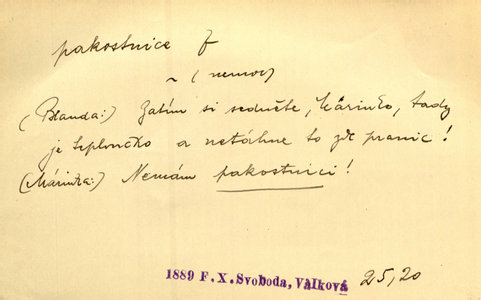 pakostnice f
~ (nemoc)
(Blanda:) Zatím si sedněte, Márinko, tady
je teploučko a netáhne to zde pranic!
(Márinka:) Nemám pakostnici!
1889 F. X. Svoboda, Válková 25,20